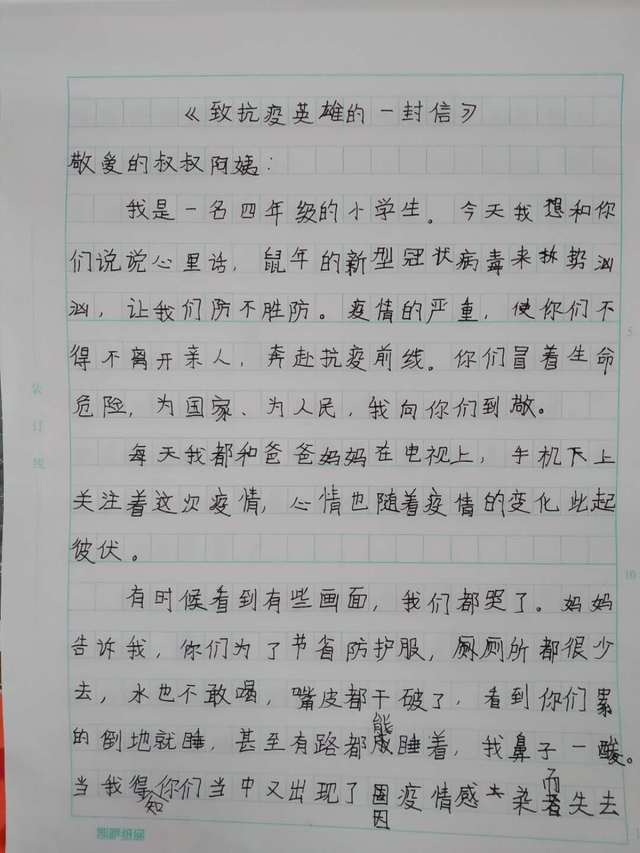 《致抗疫英雄的一封信》
敬爱的叔叔阿姨：
我是一名四年级的小学生。今天我想和你
们说说心里话，鼠年的新型冠状病毒来拆势汹
汹，让我们防不胜防。疫情的严重，使你们不
得不离开亲人，奔赴抗疫前线。你们冒着生命
危险，为国家、为人民，我向你们到敬。
每天我都和爸爸妈妈在电视上，手机下上
关注着这次疫情，心情也随着疫情的变化此起
彼伏。
有时候看到有些画面，我们都哭了。妈妈
告诉我，你们为了节省防护服，厕厕所都很少
去，水也不敢喝，嘴皮都干破了，看到你们累
的倒地就睡，甚至有路都能睡着，我鼻子一酸。
当我得知你们当中又出现了因疫情感染而失去
装
订
线
5
10